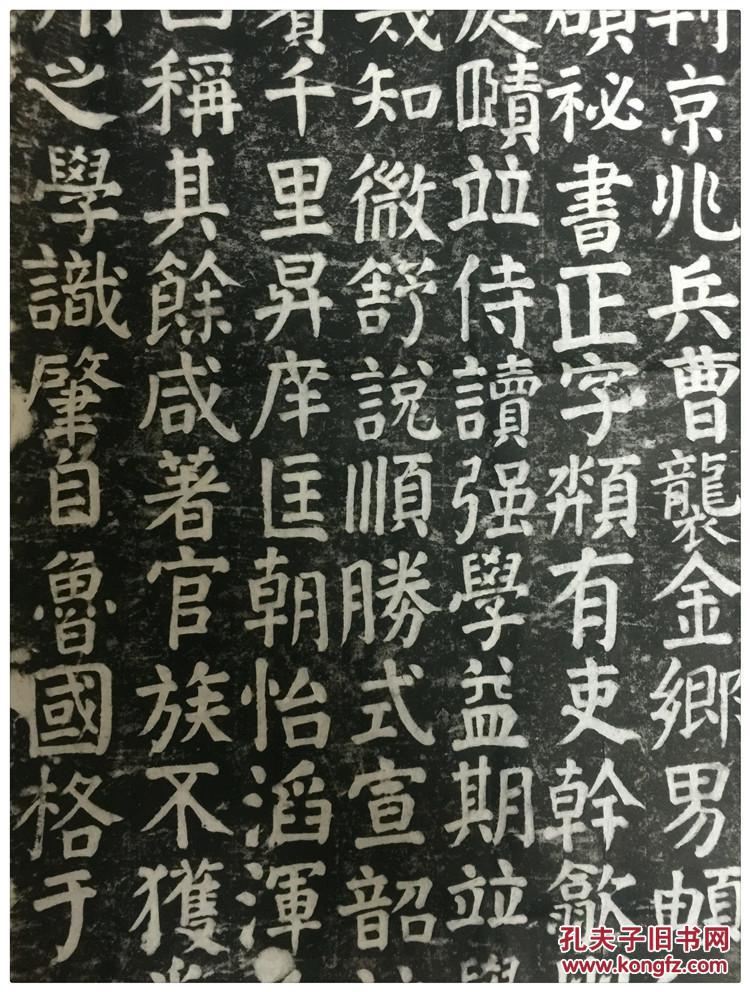 京兆兵曹襲金鄉男
碩祕書正字有吏幹歙
賾竝侍讀强學益期竝學
幾知微舒說順勝式宣韶
千里昇庠匡朝怡滔渾
稱其餘咸著官族不獲
用之學識肇自魯國格于
孔夫子旧书网
www.kongfz.com